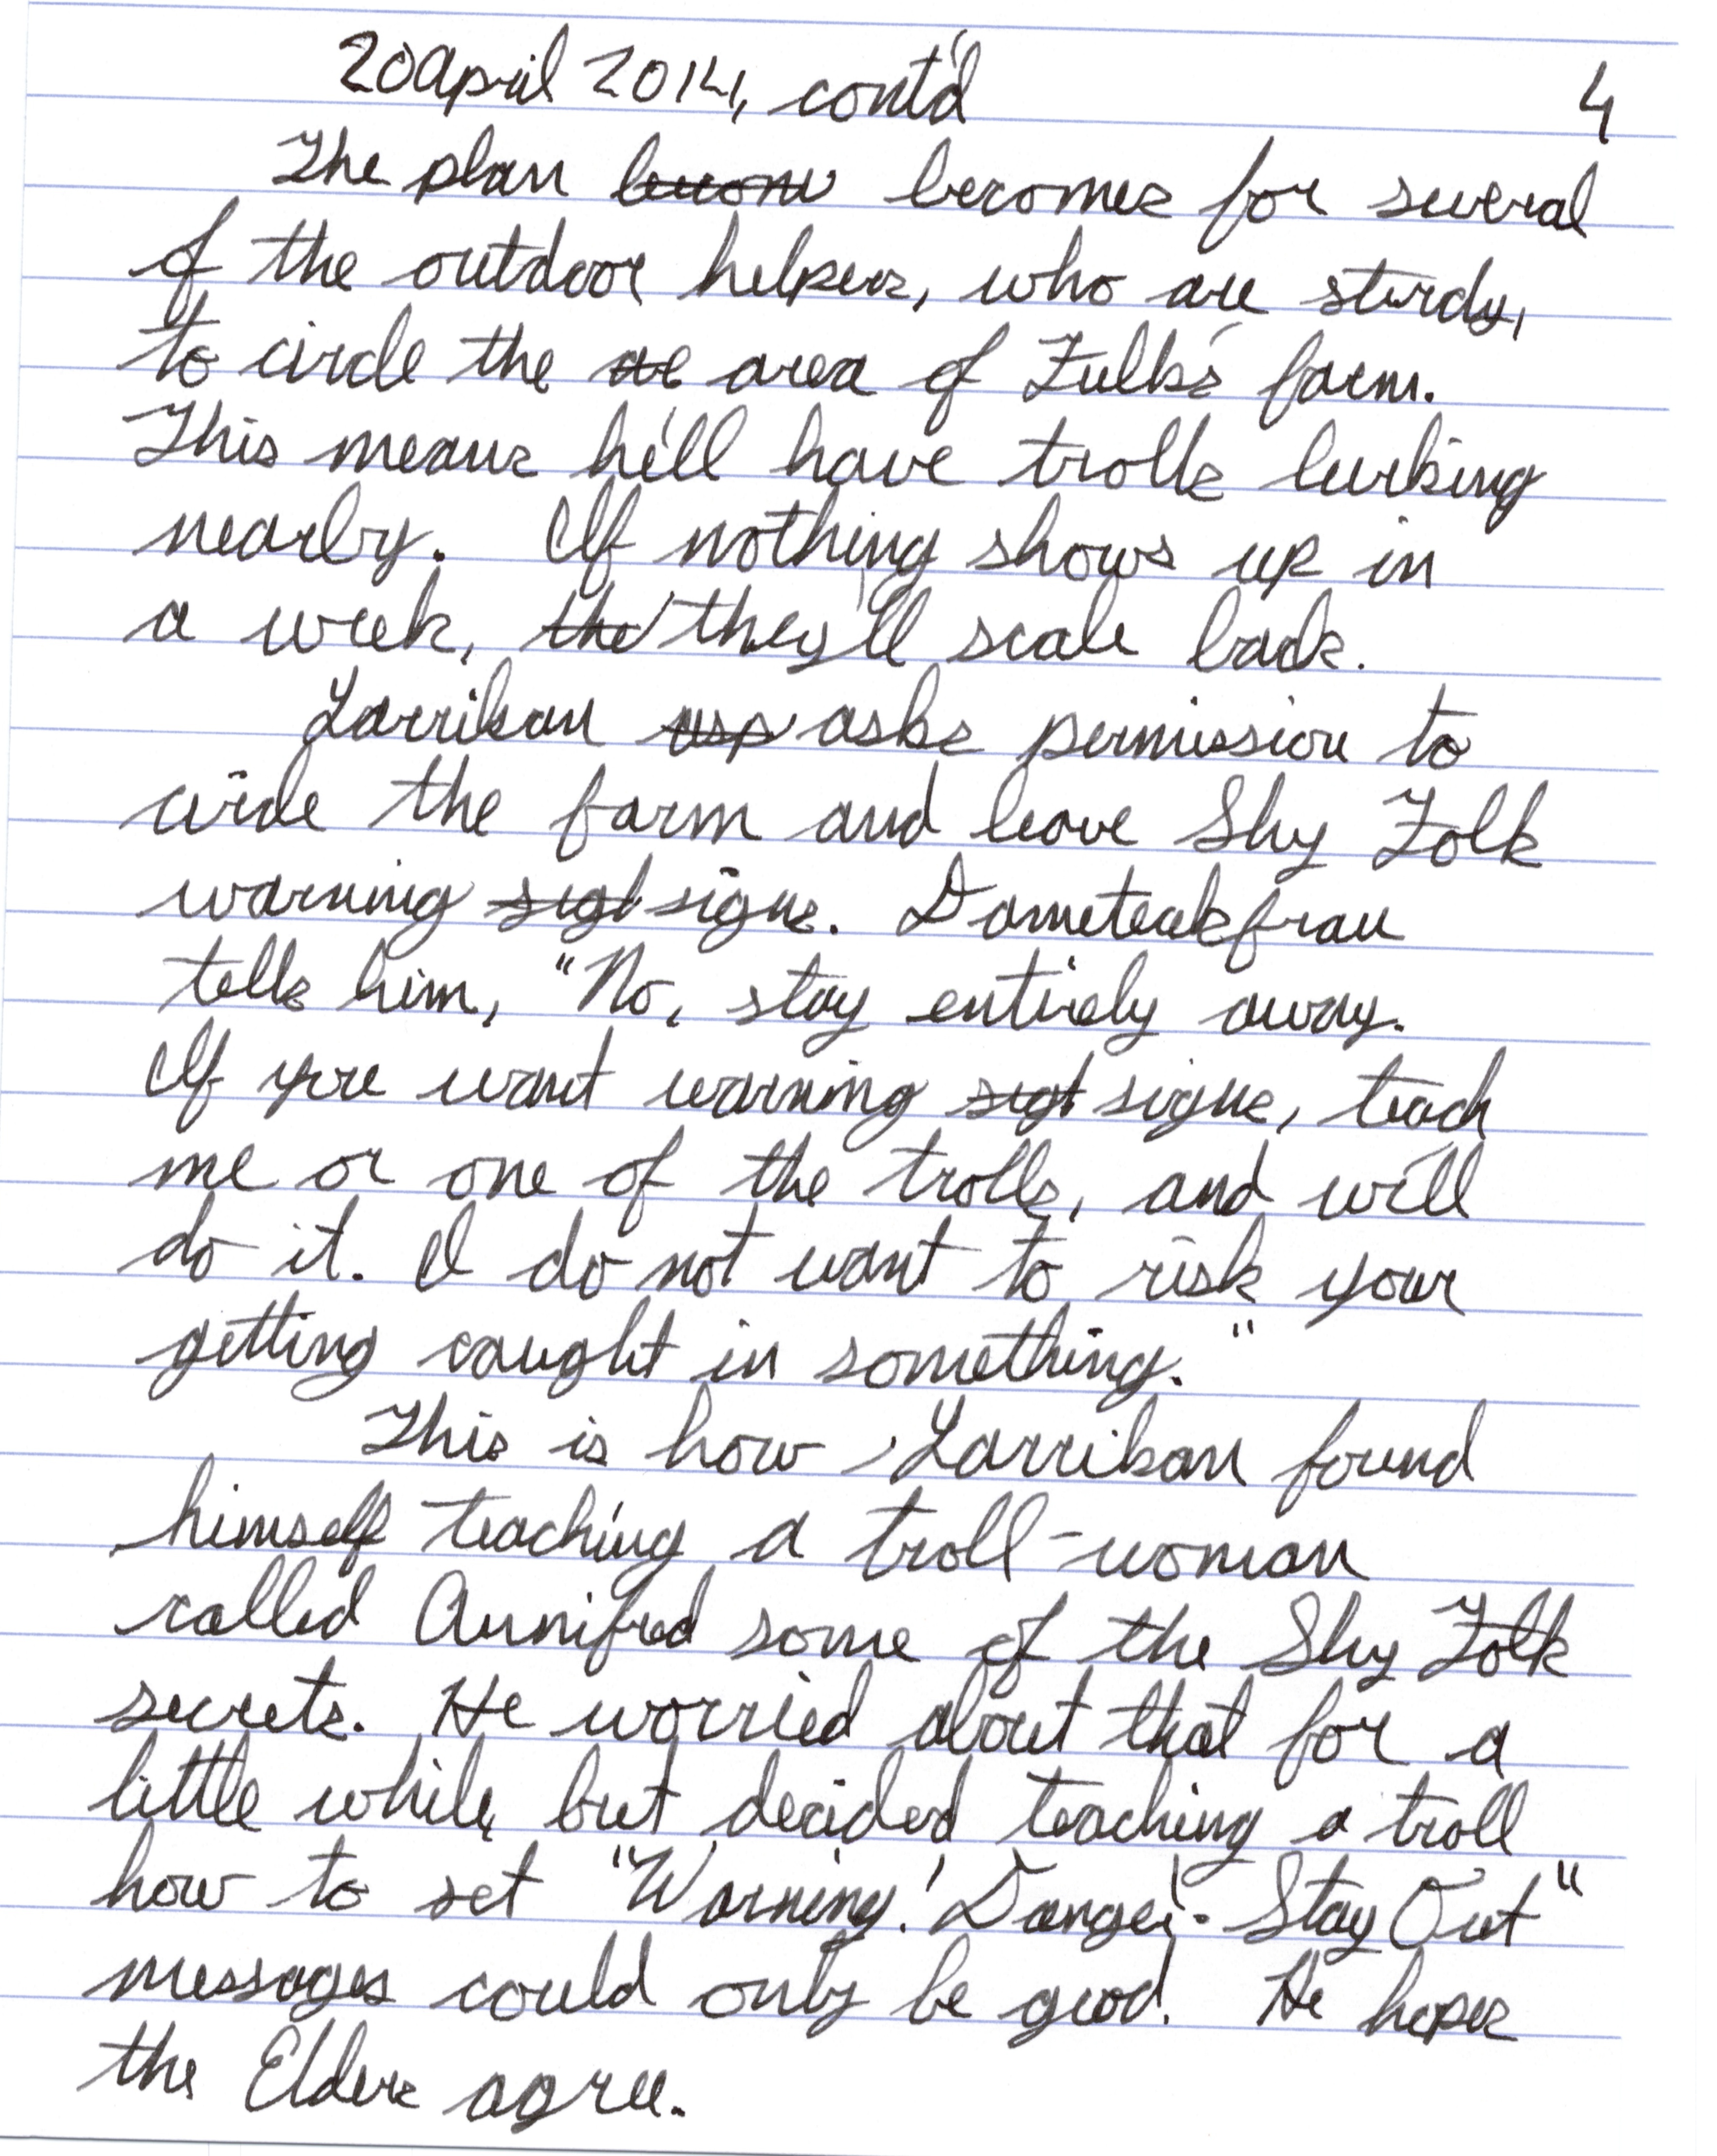 20 April 2014, cont'd 4
The plan becom becomes for several
of the outdoor helpers, who are sturdy,
to circle the ae area of Fulk's farm.
This means he'll have trolls lurking
nearby. If nothing shows up in
a week, the they'll scale back.
Larrikan asp asks permission to
circle the farm and leave Shy Folk
warning sigl signs. Dameteakfrau
tells him, "No, stay entirely away.
If you want warning sigl signs, teach
me or one of the trolls, and we'll
do it. I do not want to risk your
getting caught in something."
This is how Larrikan found
himself teaching a troll-woman
called Annifred some of the Shy Folk
secrets. He worried about that for a
little while, but decided teaching a troll
how to set "Warning! Danger! Stay Out"
messages could only be good. He hopes
the Elders agree.